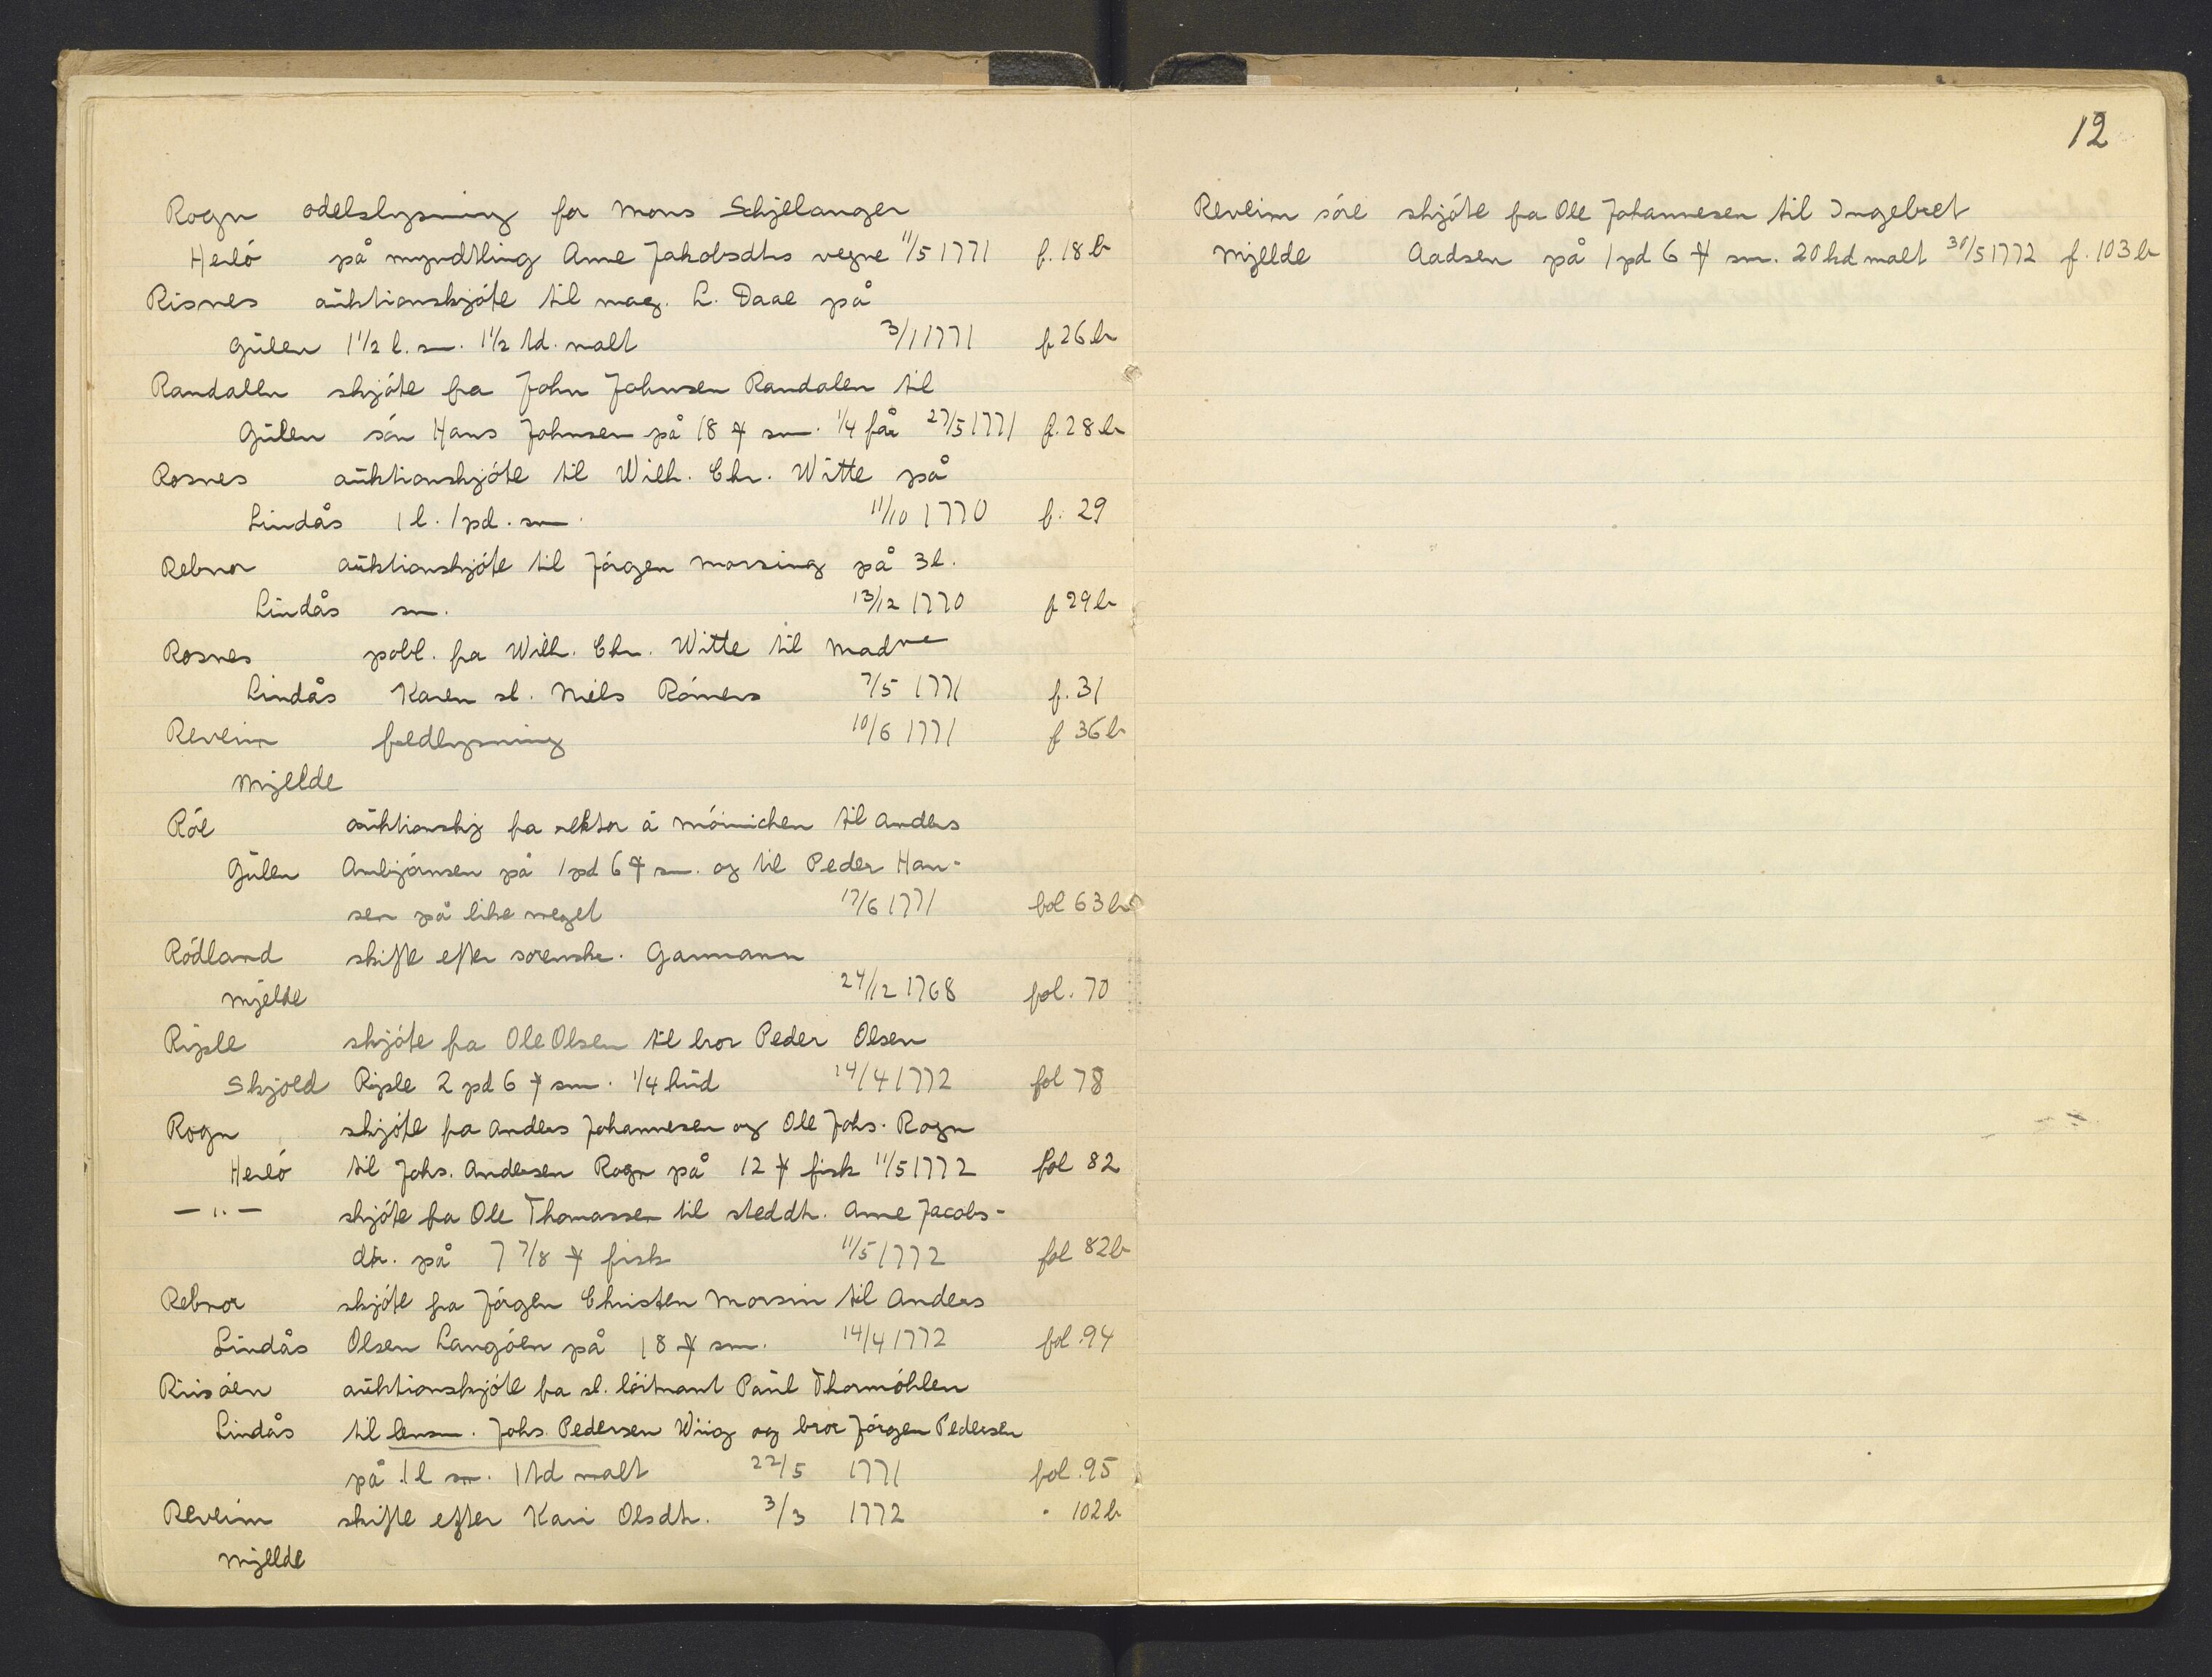 Rogn odelslysning for Mons Schjelanger
Herlö på myndtling Anne Jakobsdtrs vegne 11/5 1771 f. 18 b
Risnes auktionskjöte til mag. L. Daae på
Gulen 1 1/2 l. sm. 1 1/2 td. malt 3/1 1771 f 26 b
Randalen skjöte fra John Johnsen Randalen til
Gulen sön Hans Johnsen på 18 ℔ sm. 1/4 får 27/5 1771 f. 28 b
Rosnes auktionskjöte til Wilh. Chr. Witte på
Lindås 1 l. 1 pd. sm. 11/10 1770 f. 29
Rebnor auktionskjöte til Jörgen Morsing på 3 l.
Lindås sm. 13/12 1770 f 29 b
Rosnes pobl. fra Wilh. Chr. Witte til Mad me
Lindås Karen sl. Niels Römers 7/5 1771 f. 31
Reveim fredlysning 10/6 1771 f 36 b
Mjelde
Röe auktionskj fra rektor å Möinichen til Anders
Gulen Anbjörnsen på 1 pd 6 ℔ sm. og til Peder Han-
sen på like meget 17/6 1771 fol 63 b
Rödland skifte efter sorenskr. Garmann
Mjelde 24/12 1768 fol. 70
Riple skjöte fra Ole Olsen til bror Peder Olsen
Skjold Riple 2 pd 6 ℔ sm. 1/4 hud 14/4 1772 fol 78
Rogn skjöte fra Anders Johannesen og Ole Johs. Rogn
Herlö til Johs. Andersen Rogn på 12 ℔ fisk 11/5 1772 fol 82
— " — skjöte fra Ole Thomassen til steddtr. Anne Jacobs-
dtr. på 7 7/8 ℔ fisk 11/5 1772 fol 82 b
Rebnor skjöte fra Jörgen Christen Morsin til Anders
Lindås Olsen Langöen på 18 ℔ sm. 14/4 1772 fol. 94
Riisöen auktionskjöte fra sl. löitnant Paul Thormöhlen
Lindås til lensm. Johs. Pedersen Wiig og bror Jörgen Pedersen
på 1 l sm. 1 td malt 22/5 1771 fol. 95
Reveim skifte efter Kari Olsdtr. 3/3 1772 " 102 b
Mjelde
12
Reveim söre skjöte fra Ole Johannesen til Ingebret
Mjelde Aadsen på 1 pd 6 ℔ sm. 20 kd malt 30/5 1772 f. 103 b